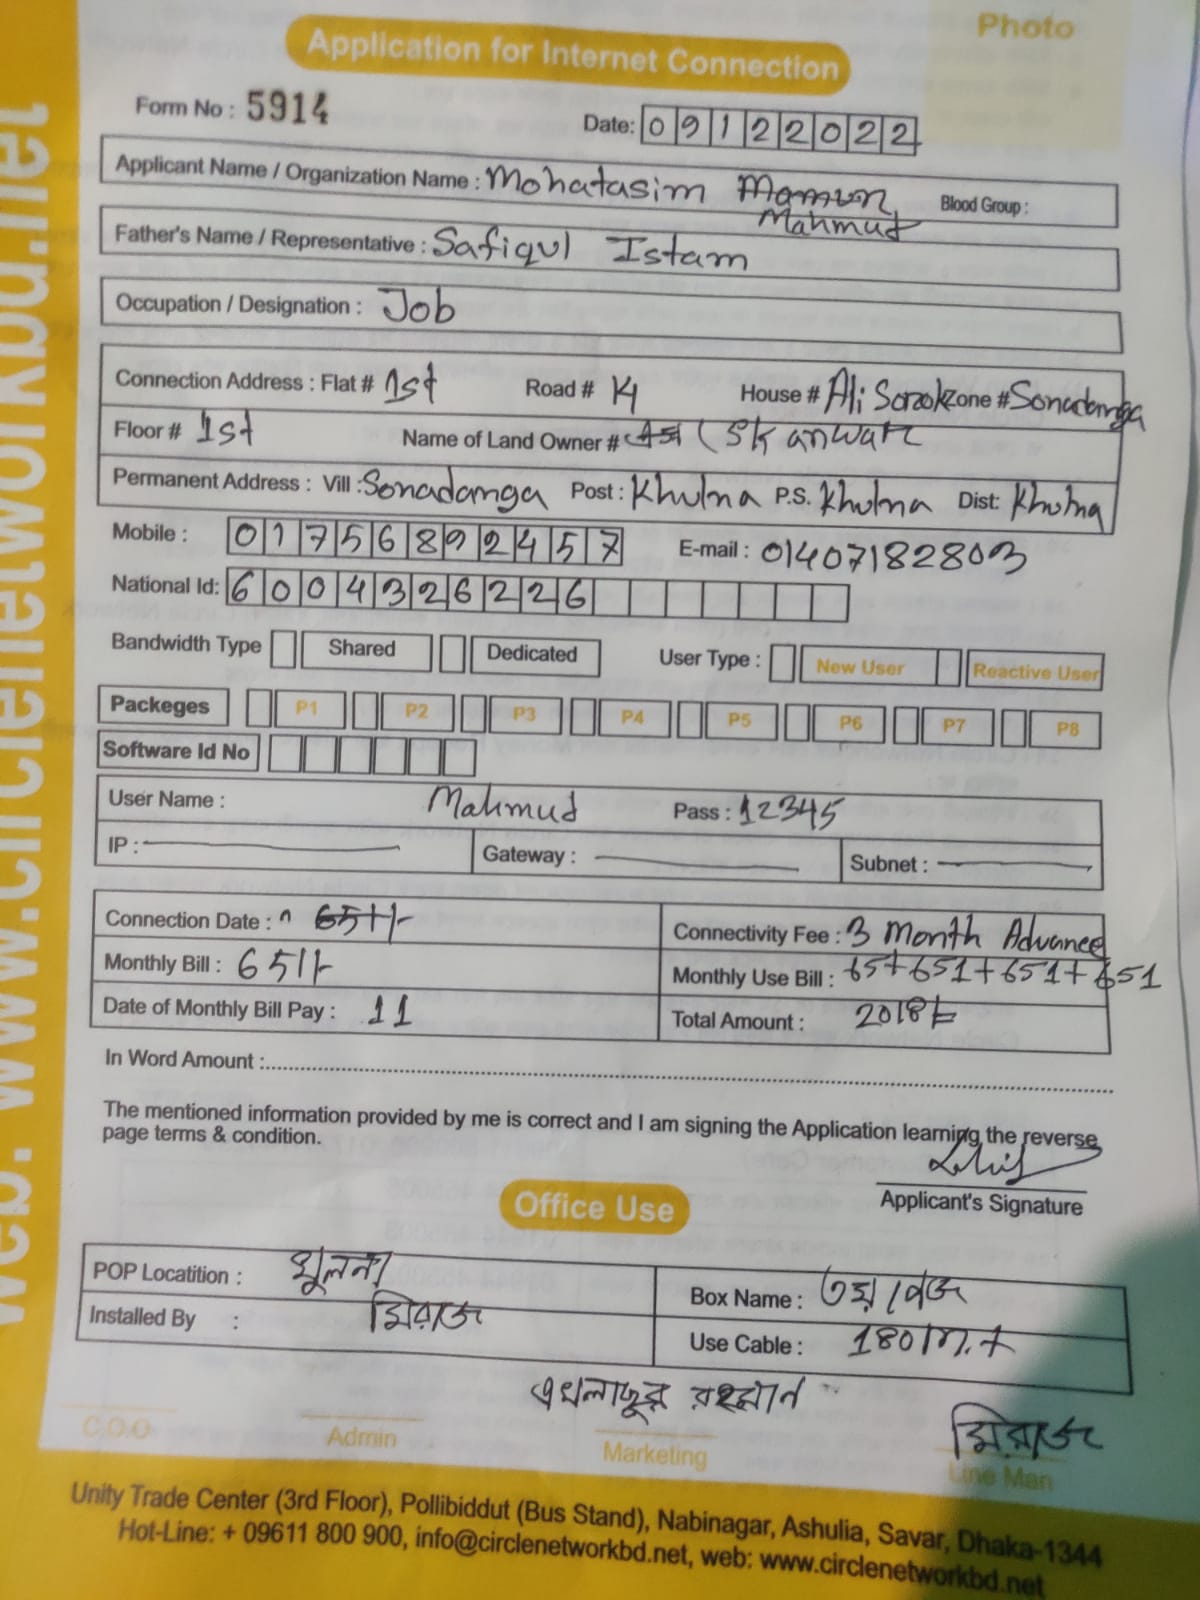 Photo
Application for Internet Connection
Form No : 5914
Date: 09122022
Applicant Name / Organization Name : Mohatasim Mamun Blood Group :
Mahmud
Father's Name / Representative : Safiqul Islam
Occupation / Designation : Job
Connection Address : Flat # 1st Road # House # Ali Zone # Sonadanga
Floor # 1st Name of Land Owner # Sk anwar
Permanent Address : Vill : Sonadanga Post : Khulna P.S. Khulna Dist: Khulna
Mobile : 01756892457 E-mail : 01407182803
National Id: 6004326226
Bandwidth Type Shared Dedicated User Type : New User Reactive User
Packeges P1 P2 P3 P4 P5 P6 P7 P8
Software Id No
User Name : Mahmud Pass : 12345
IP : Gateway : Subnet :
Connection Date : 651/- Connectivity Fee : 3 Month Advance
Monthly Bill : 651/- Monthly Use Bill : 65+651+651+651
Date of Monthly Bill Pay : 11 Total Amount : 2018
In Word Amount :
The mentioned information provided by me is correct and I am signing the Application learning the reverse
page terms & condition.
Applicant's Signature
Office Use
POP Locatition : খুলনা Box Name :
Installed By : মিরাজ Use Cable : 180 m.t
রহমান
মিরাজ
C.O.O Admin Marketing Line Man
Unity Trade Center (3rd Floor), Pollibiddut (Bus Stand), Nabinagar, Ashulia, Savar, Dhaka-1344
Hot-Line: + 09611 800 900, info@circlenetworkbd.net, web: www.circlenetworkbd.net
web: www.circlenetworkbd.net